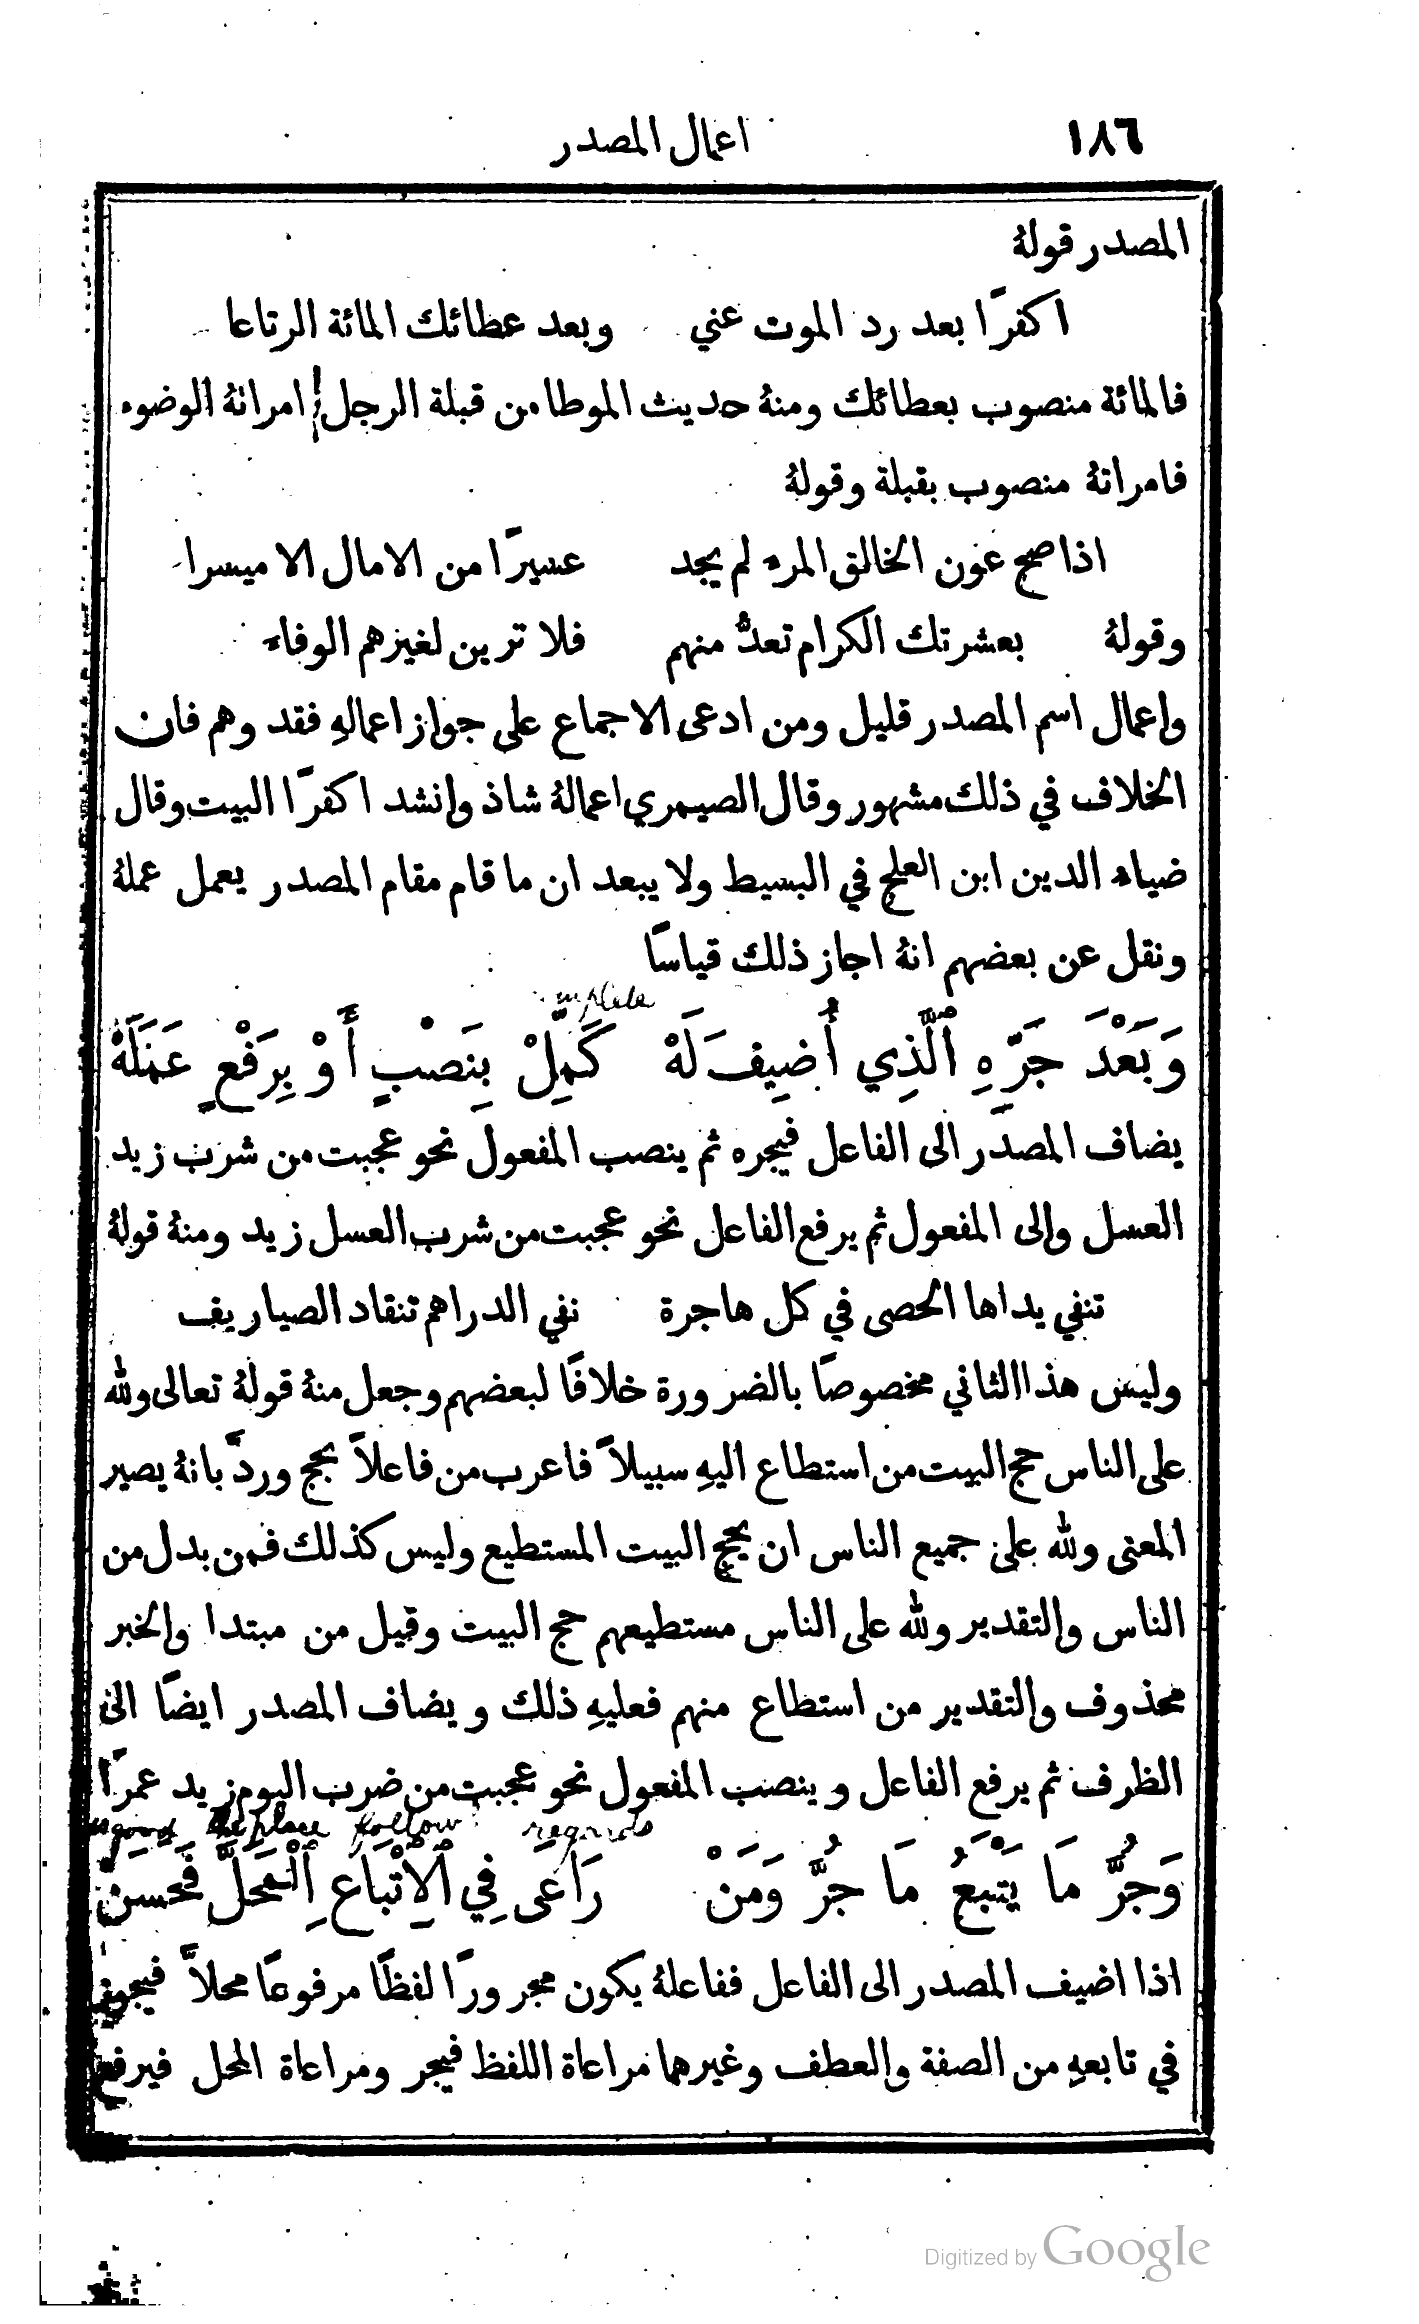 ١٨٦ اعمال المصدر
المصدر قولهُ
اكفرًا بعد رد الموت عني وبعد عطائك المائة الرتاعا
فالمائة منصوب بعطائك ومنهُ حديث الموطا من قبلة الرجل امراتهُ الوضوء
فامراتهُ منصوب بقبلة وقولهُ
اذا صح عون الخالق المرء لم يجد عسيرًا من الامال الا ميسرا
وقولهُ بعشرتك الكرام تعدُّ منهم فلا ترين لغيرهم الوفاء
واعمال اسم المصدر قليل ومن ادعى الاجماع على جواز اعمالهِ فقد وهم فان
الخلاف في ذلك مشهور وقال الصيمري اعمالهُ شاذ وانشد اكفرًا البيت وقال
ضياء الدين ابن العلج في البسيط ولا يبعد ان ما قام مقام المصدر يعمل عملهُ
ونقل عن بعضهم انهُ اجاز ذلك قياسًا
وَبَعْدَ جَرِّهِ ٱلَّذِي أُضِيفَ لَهْ كَمِّلْ بِنَصْبٍ أَوْ بِرَفْعٍ عَمَلَهْ
يضاف المصدر الى الفاعل فيجره ثم ينصب المفعول نحو عجبت من شرب زيد
العسل والى المفعول ثم يرفع الفاعل نحو عجبت من شرب العسل زيد ومنهُ قولهُ
تنفي يداها الحصى في كل هاجرة نفي الدراهم تنقاد الصياريف
وليس هذا الثاني مخصوصًا بالضرورة خلافًا لبعضهم وجعل منهُ قولهُ تعالى ولله
على الناس حج البيت من استطاع اليهِ سبيلاً فاعرب من فاعلاً بحج وردَّ بانهُ يصير
المعنى ولله على جميع الناس ان يحج البيت المستطيع وليس كذلك فمن بدل من
الناس والتقدير ولله على الناس مستطيعهم حج البيت وقيل من مبتدا والخبر
محذوف والتقدير من استطاع منهم فعليهِ ذلك ويضاف المصدر ايضًا الى
الظرف ثم يرفع الفاعل وينصب المفعول نحو عجبت من ضرب اليوم زيد عمرًا
the place follow regards
وَجُرَّ مَا يَتْبَعُ مَا جُرَّ وَمَنْ رَاعَى فِي ٱلِاتْبَاعِ ٱلْمَحَلَّ فَحَسَنْ
اذا اضيف المصدر الى الفاعل ففاعلهُ يكون مجرورًا لفظًا مرفوعًا محلاًّ فيجوز
في تابعهِ من الصفة والعطف وغيرهما مراعاة اللفظ فيجر ومراعاة المحل فيرفع
Digitized by Google